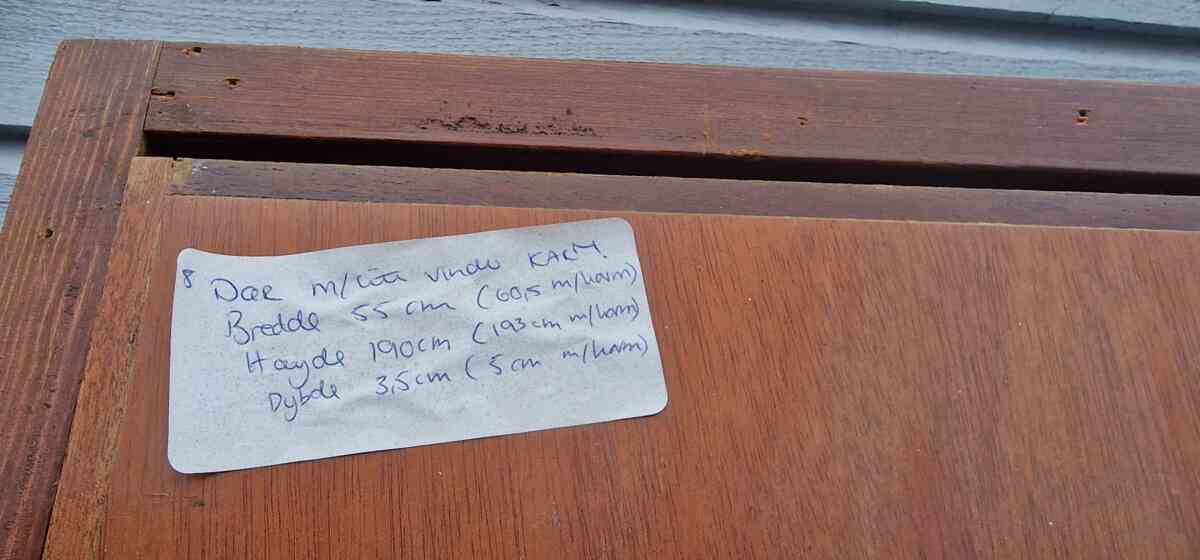 8 Dør m/lita vindu KARM.
Bredde 55 cm (60,5 m/karm)
Høyde 190cm (193cm m/karm)
Dybde 3,5cm (5cm m/karm)